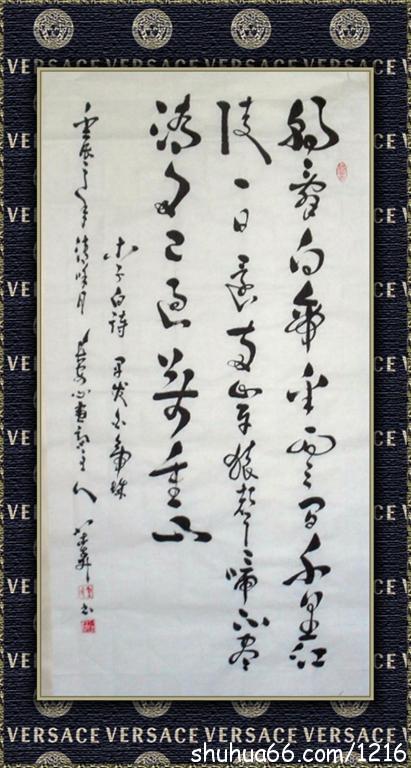 朝辞白帝彩雲间千里江
陵一日還兩岸猿聲啼不盡
轻舟已過萬重山
李白诗 早发白帝城
壬辰之年清明月 主人 书
VERSACE VERSACE VERSACE VERSACE
shuhua66.com/1216